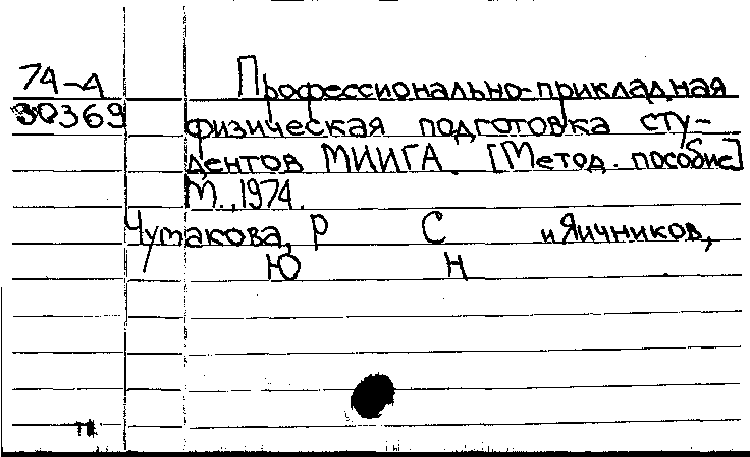 74-4 Профессионально-прикладная
30369 физическая подготовка сту-
дентов МИИГА. [Метод. пособие]
М., 1974.
Чумакова, Р С и Яичников,
Ю Н